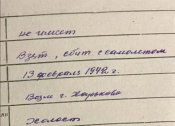 не числит
Взят, сбит с самолетом
13 февраля 1942 г.
Возле г. Харькова
Холост